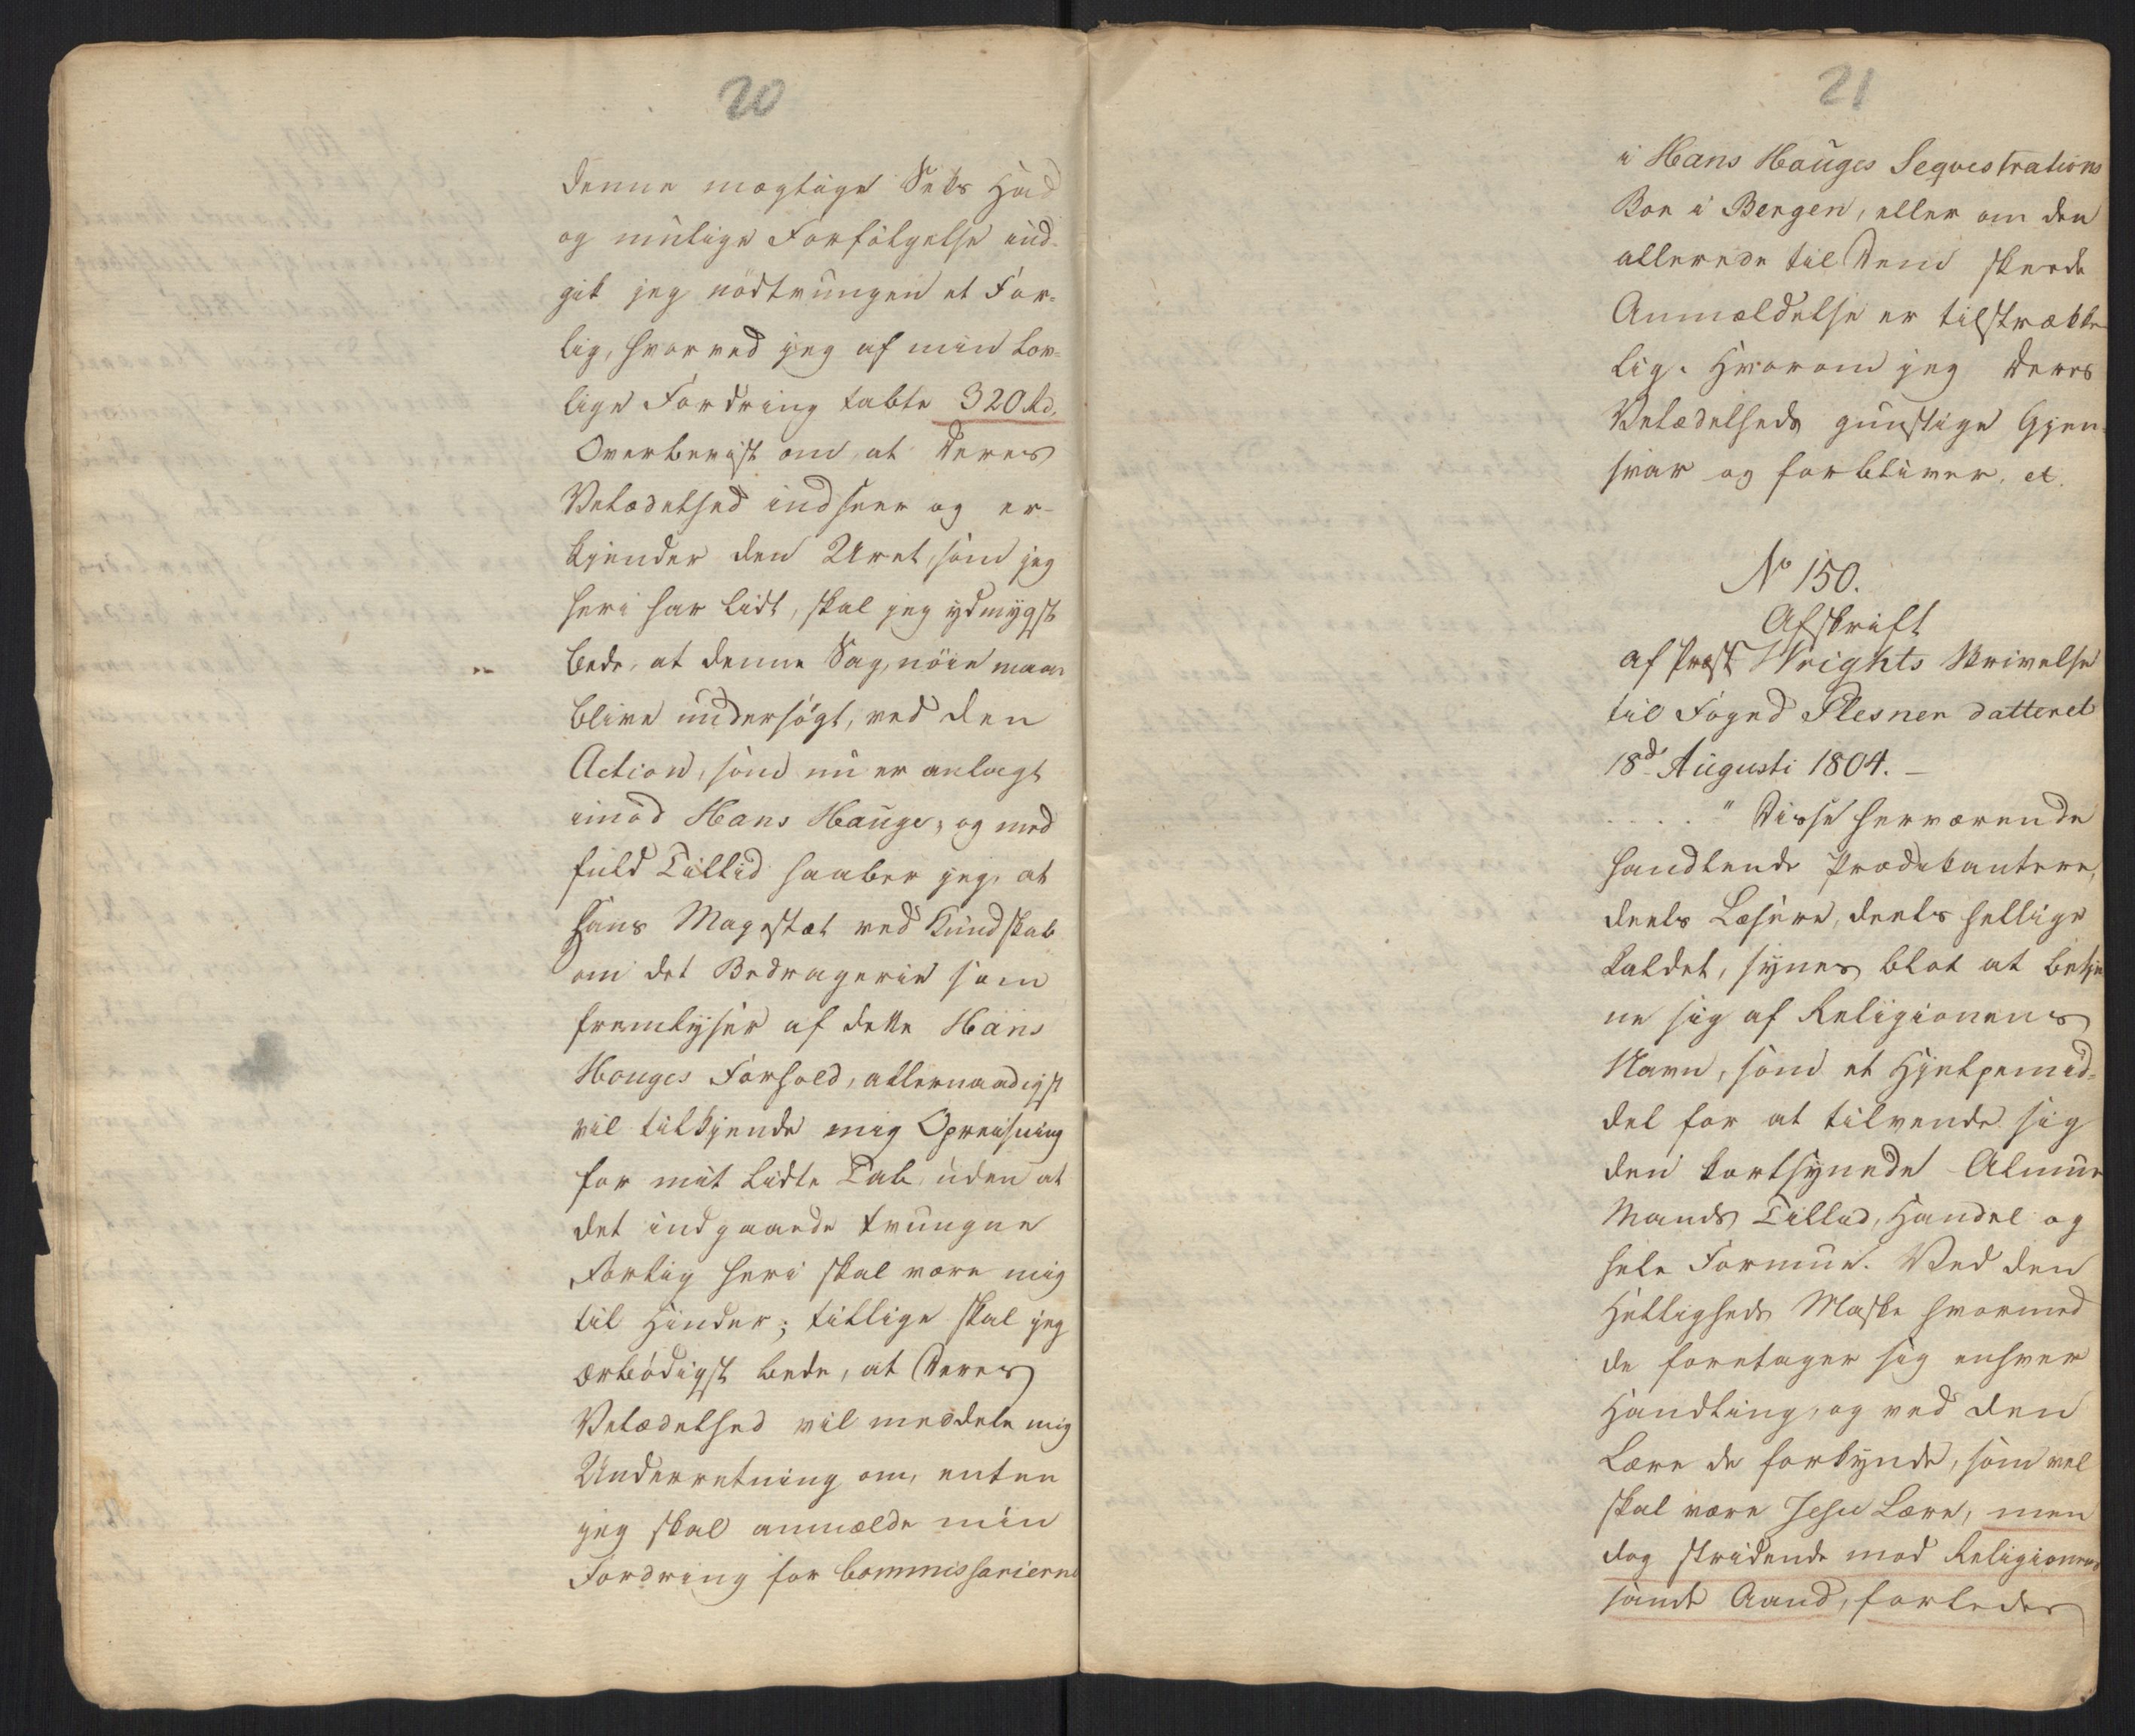 20
denne mægtige Sekts Had
og mulige Forfølgelse ind-
gik jeg nödtvungen et For-
lig, hvorved jeg af min lov-
lige Fordring tabte 320 Rd.
Overbeviist om, at Deres
Velædelhed indseer og er-
kjender den Uret, som jeg
heri har lidt, skal jeg ydmygst
bede, at denne Sag, nöie maa
blive undersögt, ved den
Action, som nu er anlagt
imod Hans Hauge, og med
fuld Tillid haaber jeg, at
Hans Majestæt ved Kundskab
om det Bedragerie som
fremlyser af dette Hans
Hauges Forhold, allernaadigst
vil tilkjende mig Opreisning
for mit lidte Tab, uden at
det indgaaede tvungne
Forlig heri skal være mig
til Hinder; tillige skal jeg
ærbödigst bede, at Deres
Velædelhed vil meddele mig
Underretning om, enten
jeg skal anmælde min
Fordring for Commissarierne
21
i Hans Hauges Sequestrations
Boe i Bergen, eller om den
allerede til Dem skeede
Anmældelse er tilstrække
lig. Hvorom jeg Deres
Velædelheds gunstige Gjen-
svar og forbliver, et.
No 150.
Afskrift
af Præst Wrights Skrivelse
til Foged Flesner datteret
18d Augusti 1804. —
. . . . " Disse herværende
handlende Prædikantere,
deels Læsere, deels hellige
kaldet, synes blot at betje
ne sig af Religionens
Navn, som et Hjelpemid-
del for at tilvende sig
den kortsynede Almue
Mands Tillid, Handel og
hele Formue. Ved den
Helligheds Maske hvormed
de foretager sig enhver
Handling, og ved den
Lære de forkynde, som vel
skal være Jesu Lære, men
dog stridende mod Religionens
sande Aand, forleder